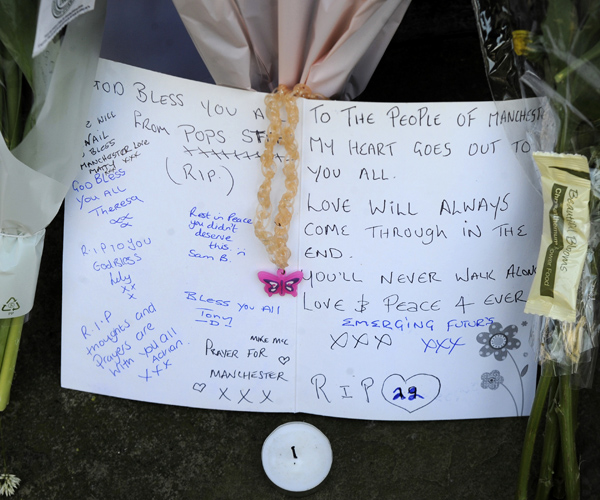 GOD BLESS YOU A
FROM POPS
(RIP.)
2 WILL
NAIL
BLESS
MANCHESTER LOVE
MATT XXX
GOD BLESS
YOU ALL
Theresa
R.I.P TO YOU
God Bless
Lily
xx
x
R.I.P
thoughts and
Prayers are
with you all
Adrian
XXX
Rest in Peace
you didn't
deserve
this.
Sam B.
BLESS YOU ALL
Tony
D!
MIKE MIC
PRAYER FOR
MANCHESTER
X X X
TO THE PEOPLE OF MANCHE
MY HEART GOES OUT TO
YOU ALL.
LOVE WILL ALWAYS
COME THROUGH IN THE
END.
YOU'LL NEVER WALK ALON
LOVE & PEACE 4 EVER
EMERGING FUTURES
XXX XXX
R I P 22
Beautiful Blooms